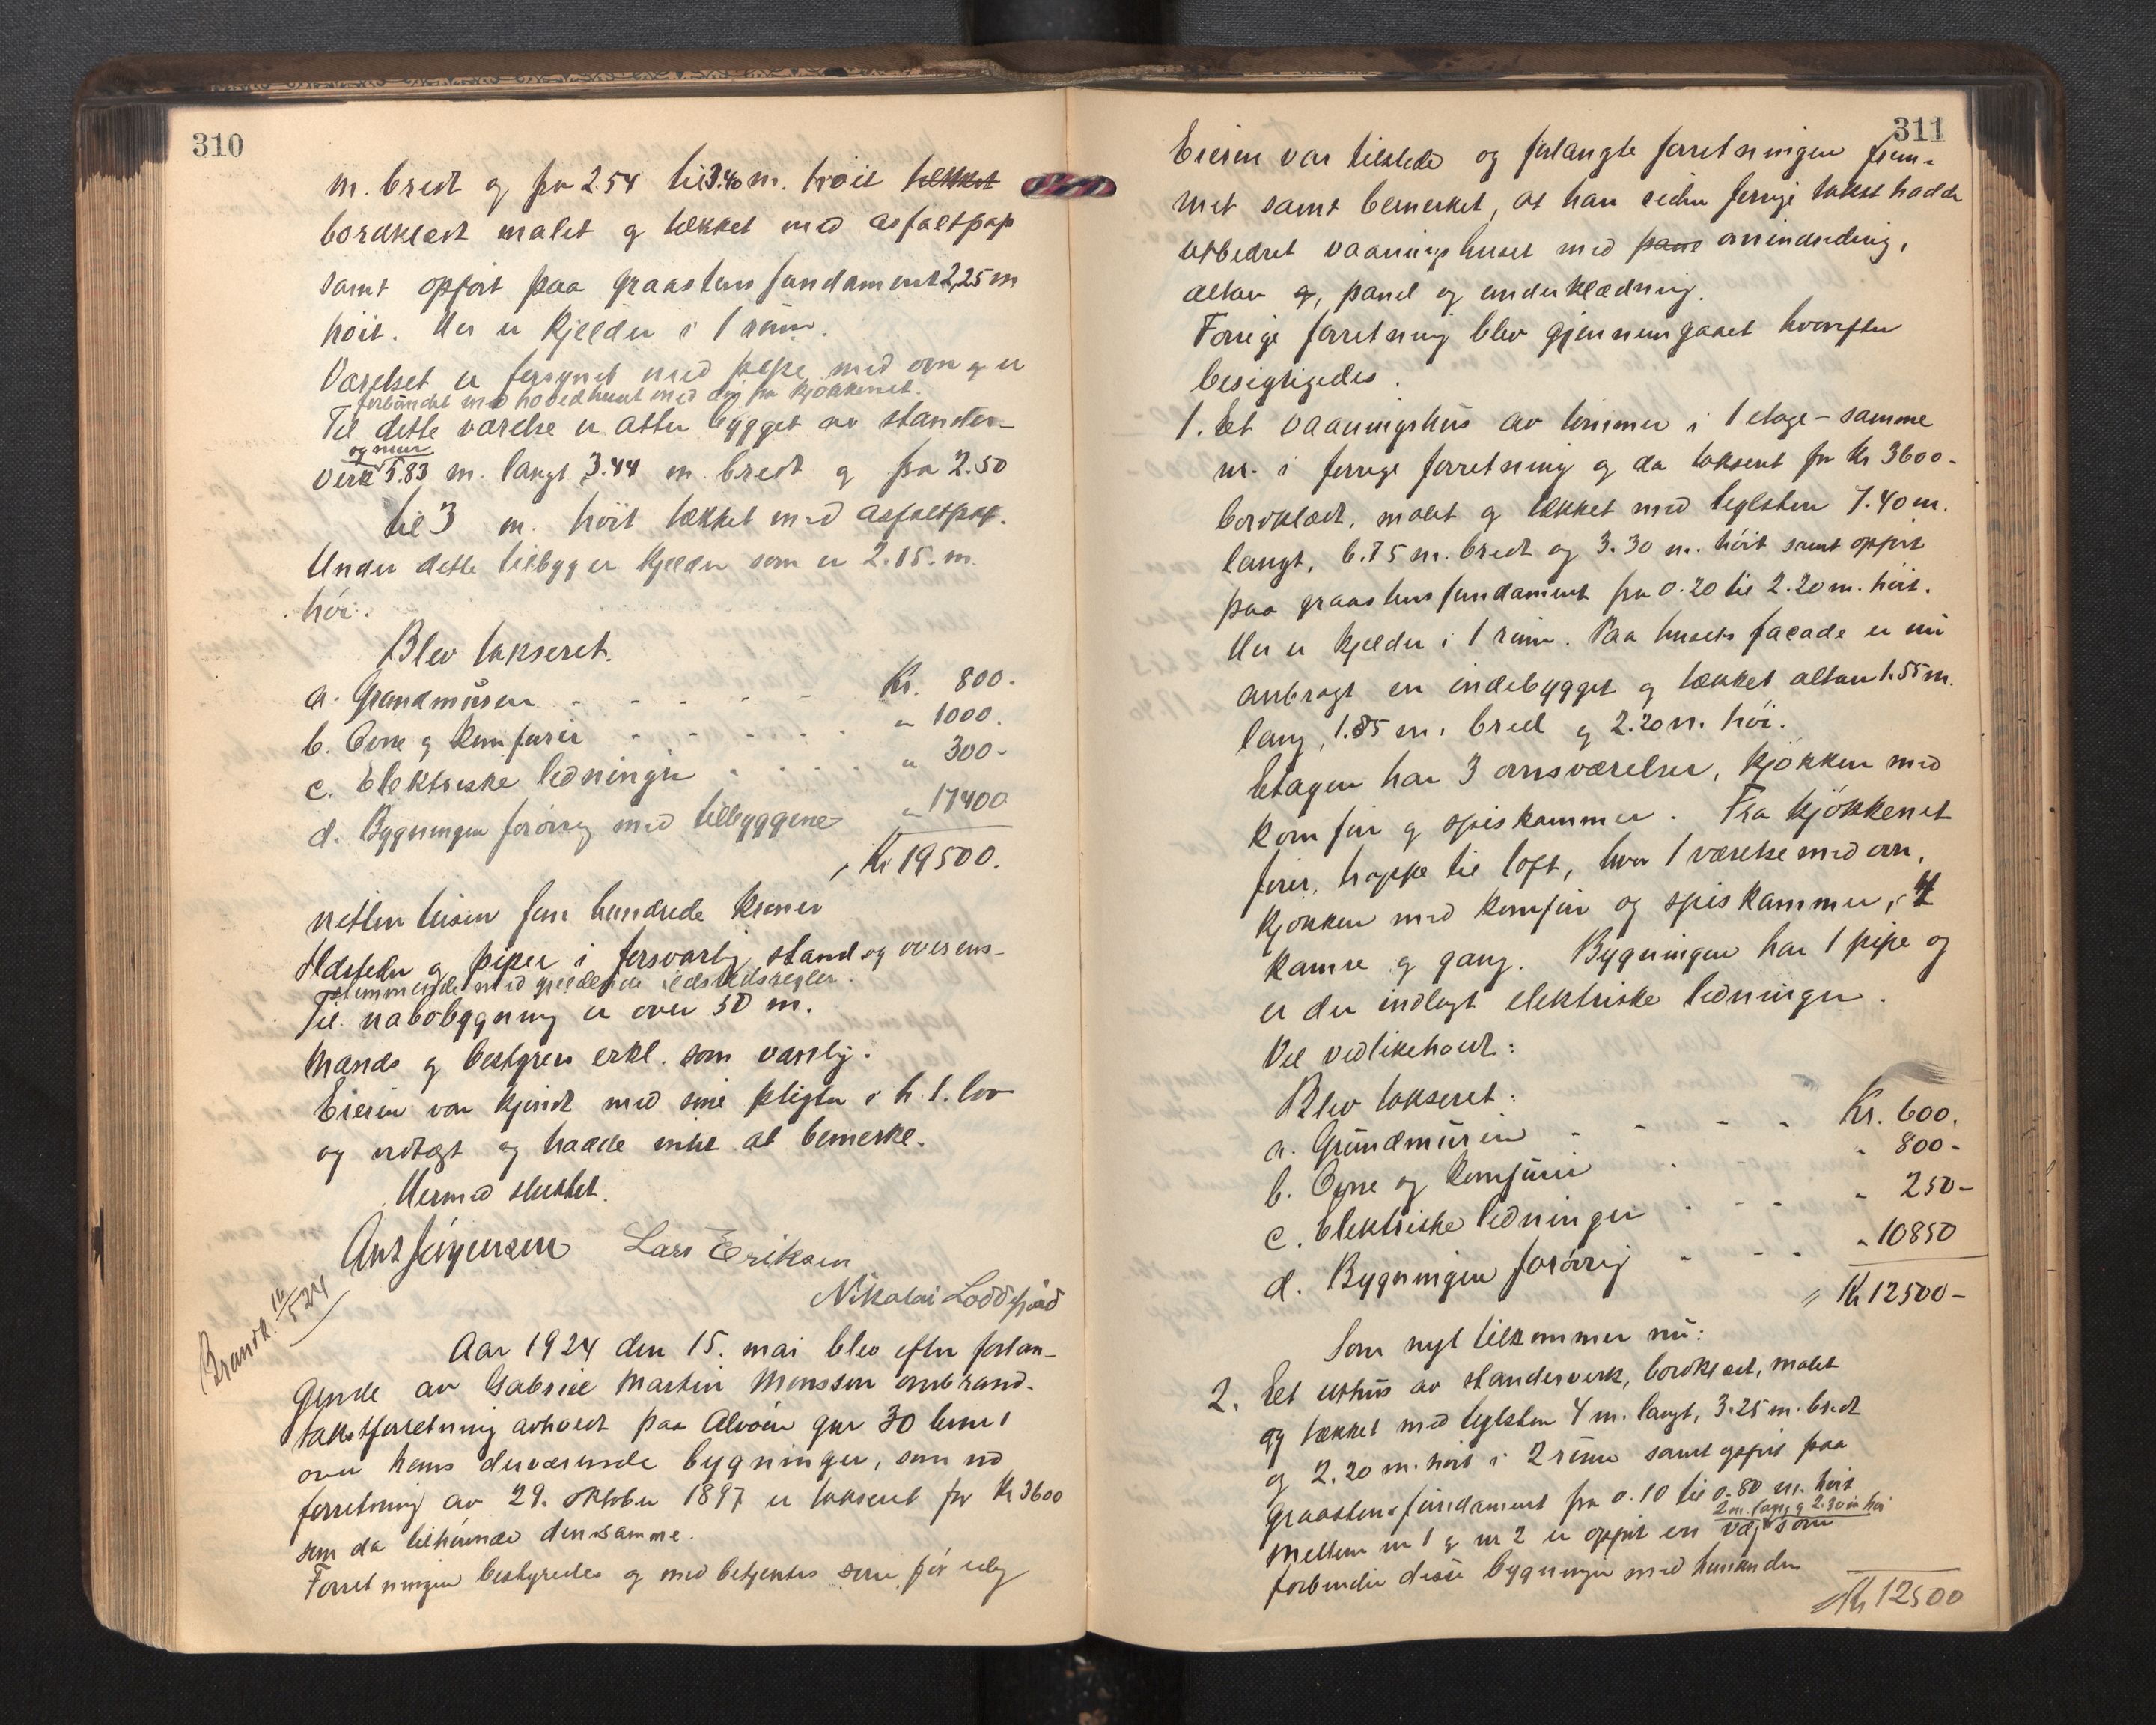 310
m. bredt og fra 2.54 til 3.40 m. høit tekket
bordklædt malet og tækket med asfaltpap
samt opført paa graastens fundament 2,25 m
høit. Her er kjelder i 1 rum.
Værelset er forsynet med pipe med ovn og er
forbundet med hovedhuset med dør fra kjøkkenet.
Til dette værelse er atter bygget av stander-
og mur
verk 5.83 m. langt, 3.44 m. bredt og fra 2.50
til 3 m. høit tækket med asfaltpap.
Under dette tilbygg er kjelder som er 2.15. m.
høi.
Blev takseret.
a. Grundmuren - - - - - Kr. 800.-
b. Ovne og komfurer - - - - - " 1000.
c. Elektriske ledninger . . . . " 300-
d. Bygningen forøvrig med tilbyggene " 17400
Kr 19500.
nitten tusen fem hundrede kroner
Ildsteder og piper i forsvarlig stand og overens-
stemmende med gjeldende ildstedsregler.
Til nabobygning er over 50 m.
Mænds og bestyrers erkl. som vanlig.
Eieren var kjendt med sine pligter i h. t. lov
og vedtægt og hadde intet at bemerke.
Hermed sluttet.
Ant Jørgensen Lars Eriksen
Nikolai Loddefjord
Brandk. 16/5 24
Aar 1924 den 15. mai blev efter forlan-
gende av Gabriel Martin Monssen ombrand-
takstforretning avholdt paa Alvøen gnr 30 bnr 1
over hans derværende bygninger, som ved
forretning av 29. oktober 1897 er takseret for Kr 3600
som da tilhørende densamme.
Forretningen bestyredes og med betjentes som før udg
311
Eieren var tilstede og forlangte forretningen frem-
met samt bemerket, at han siden forrige takst hadde
utbedret vaaningshuset med pane omindredning,
altan og, panel og underklædning.
Forrige forretning blev gjennemgaaet hvorefter
besigtigedes.
1. Et vaaningshus av tømmer i 1 etage - samme
nr. i forrige forretning og da takseret for Kr 3600-
bordklædt, malet og tækket med teglsten 7.40 m.
langt, 6.75 m. bredt og 3.30 m. høit samt opført
paa graastens fundament fra 0.20 til 2.20 m. høit.
Her er kjelder i 1 rum. Paa husets facade er nu
anbragt en indebygget og tækket altan 1.55 m.
lang, 1.85 m. bred og 2.20 m. høi.
Etagen har 3 ovnsværelser, kjøkken med
komfur og spiskammer. Fra kjøkkenet
fører trappe til loft, hvor 1 værelse med ovn,
kjøkken med komfur og spiskammer, 4
kamre og gang. Bygningen har 1 pipe og
er der indlagt elektriske ledninger.
Vel vedlikeholdt:
Blev takseret:
a. Grundmuren - - - - Kr. 600.
b. Ovne og komfurer . . " 800-
c. Elektriske ledninger - - - " 250-
d. Bygningen forøvrig - - - " 10850
Kr 12500-
Som nyt tilkommer nu:
2. Et uthus av standerverk, bordklædt, malet
og tækket med teglsten 4 m. langt, 3.25 m. bredt
og 2.20 m. høit i 2 rum samt opført paa
graastens fundament fra 0.10 til 0.80 m. høit
2 m. lang og 2.30 m høi
Mellem nr 1 og nr 2 er opført en væg som
forbinder disse bygninger med hinanden
Kr 12500